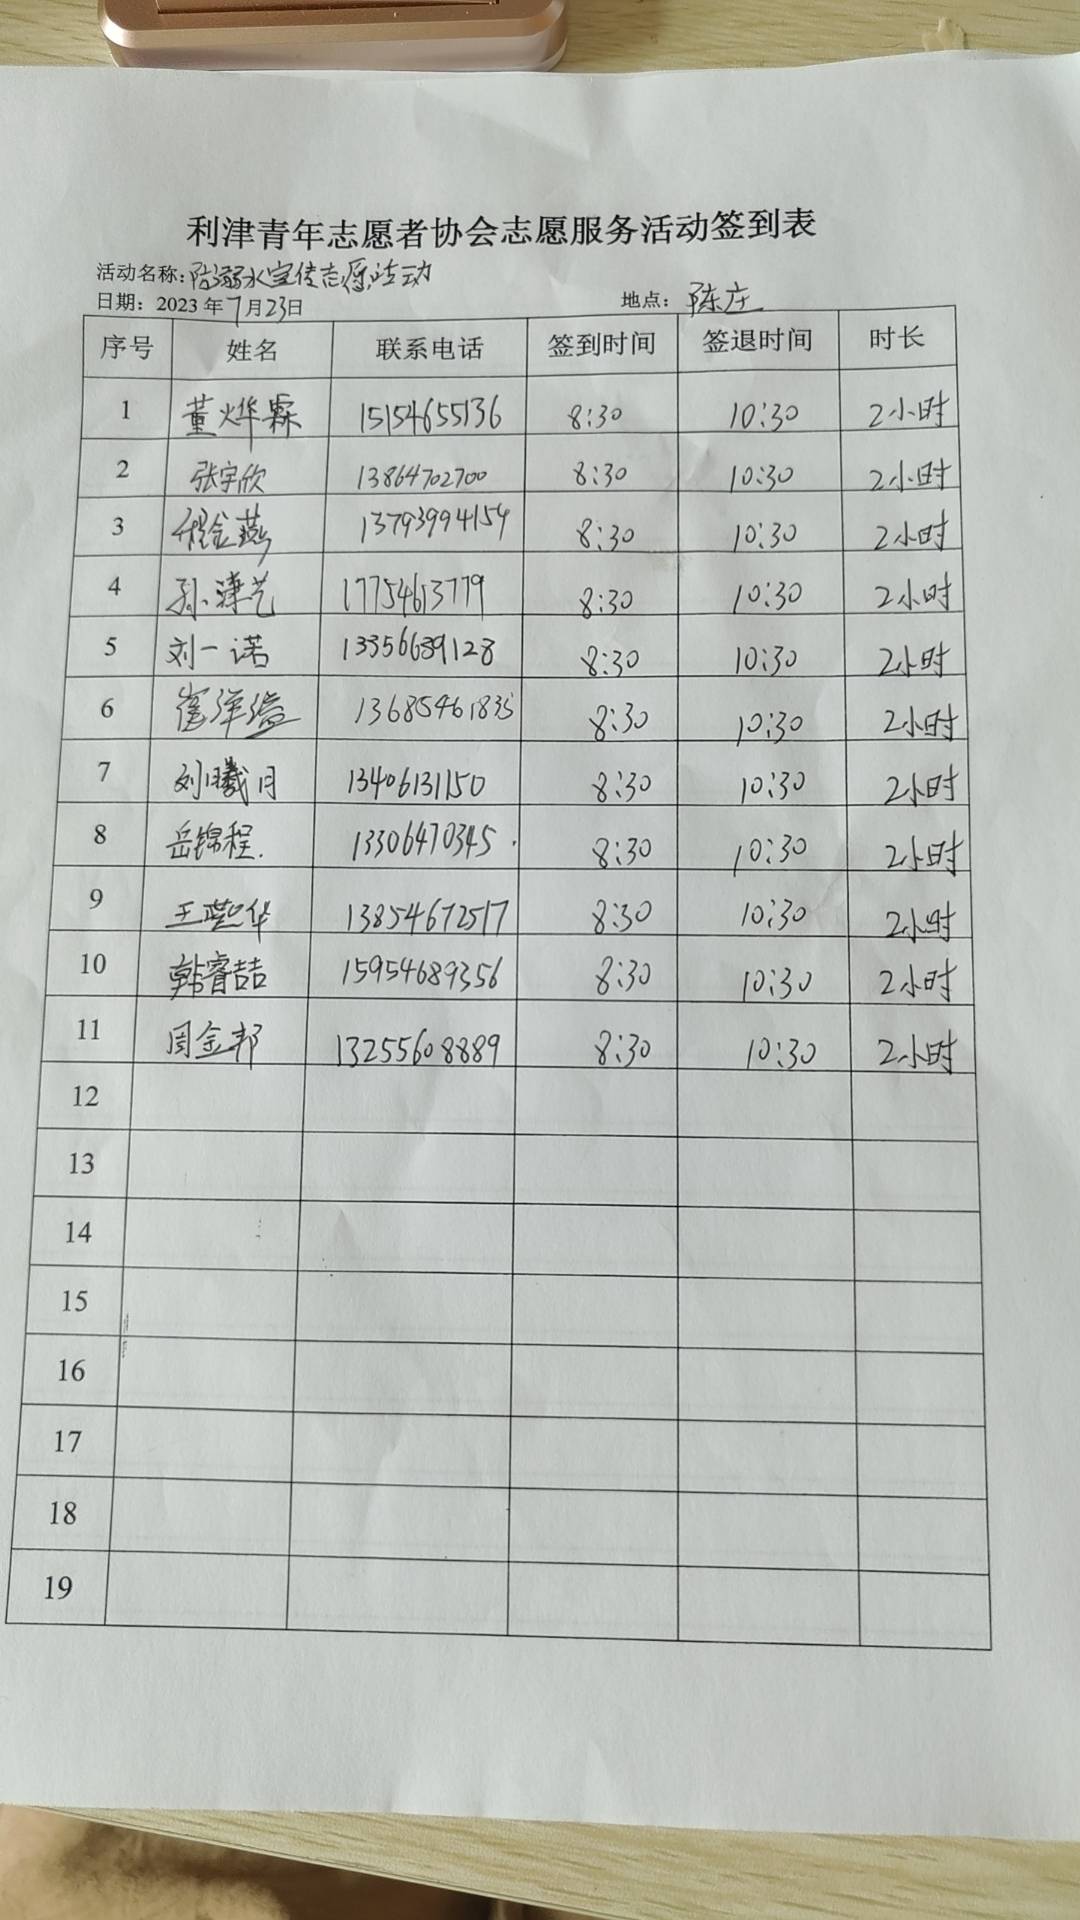 利津青年志愿者协会志愿服务活动签到表
活动名称:防溺水宣传志愿活动
日期: 2023年7月23日 地点: 陈庄
序号 姓名 联系电话 签到时间 签退时间 时长
1 董烨霖 15154655136 8:30 10:30 2小时
2 张宇欣 13864702700 8:30 10:30 2小时
3 程金燕 13793994154 8:30 10:30 2小时
4 孙津艺 17754613779 8:30 10:30 2小时
5 刘一诺 13356639128 8:30 10:30 2小时
6 崔洋溢 13685461835 8:30 10:30 2小时
7 刘曦月 13406131150 8:30 10:30 2小时
8 岳锦程. 13306470345. 8:30 10:30 2小时
9 王华 13854672517 8:30 10:30 2小时
10 韩睿喆 15954689356 8:30 10:30 2小时
11 周金邦 13255608889 8:30 10:30 2小时
12
13
14
15
16
17
18
19